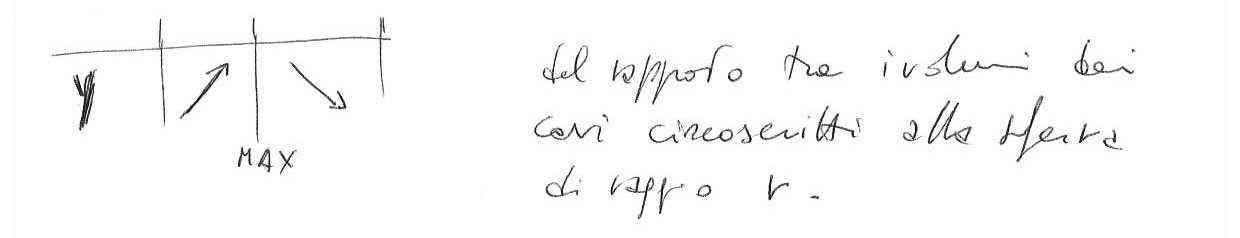 y
MAX
del rapporto tra i volumi dei
coni circoscritti alla sfera
di raggio r.